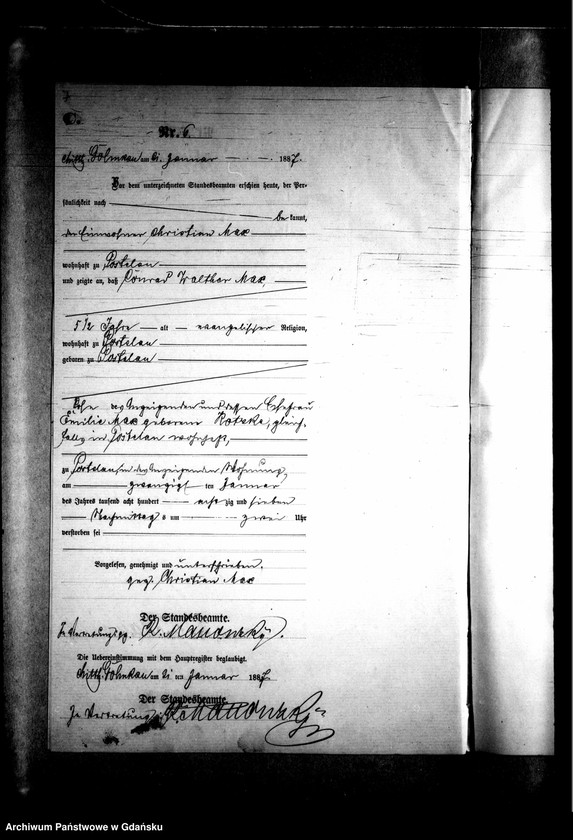 C.
Nr. 6
Mittl. Golmkau am 21. Januar 1887.
Vor dem unterzeichneten Standesbeamten erschien heute, der Per-
sönlichkeit nach
be kannt,
der Einwohner Christian Max
wohnhaft zu Postelau
und zeigte an, daß Conrad Walther Max,
5 1/2 Jahre alt evangelischer Religion,
wohnhaft zu Postelau
geboren zu Postelau
Sohn des Anzeigenden und dessen Ehefrau
Emilie Max geborenen Kotzke, gleich-
falls in Postelau wohnhaft,
zu Postelau in des Anzeigenden Wohnung,
am zwanzigsten Januar
des Jahres tausend acht hundert acht zig und sieben
Nachmittags um zwei Uhr
verstorben sei
Vorgelesen, genehmigt und unterschrieben.
gez. Christian Max
Der Standesbeamte.
In Vertretung gez.
Die Uebereinstimmung mit dem Hauptregister beglaubigt.
Mittl. Golmkau am 21. ten Januar 1887.
Der Standesbeamte.
In Vertretung
Archiwum Państwowe w Gdańsku